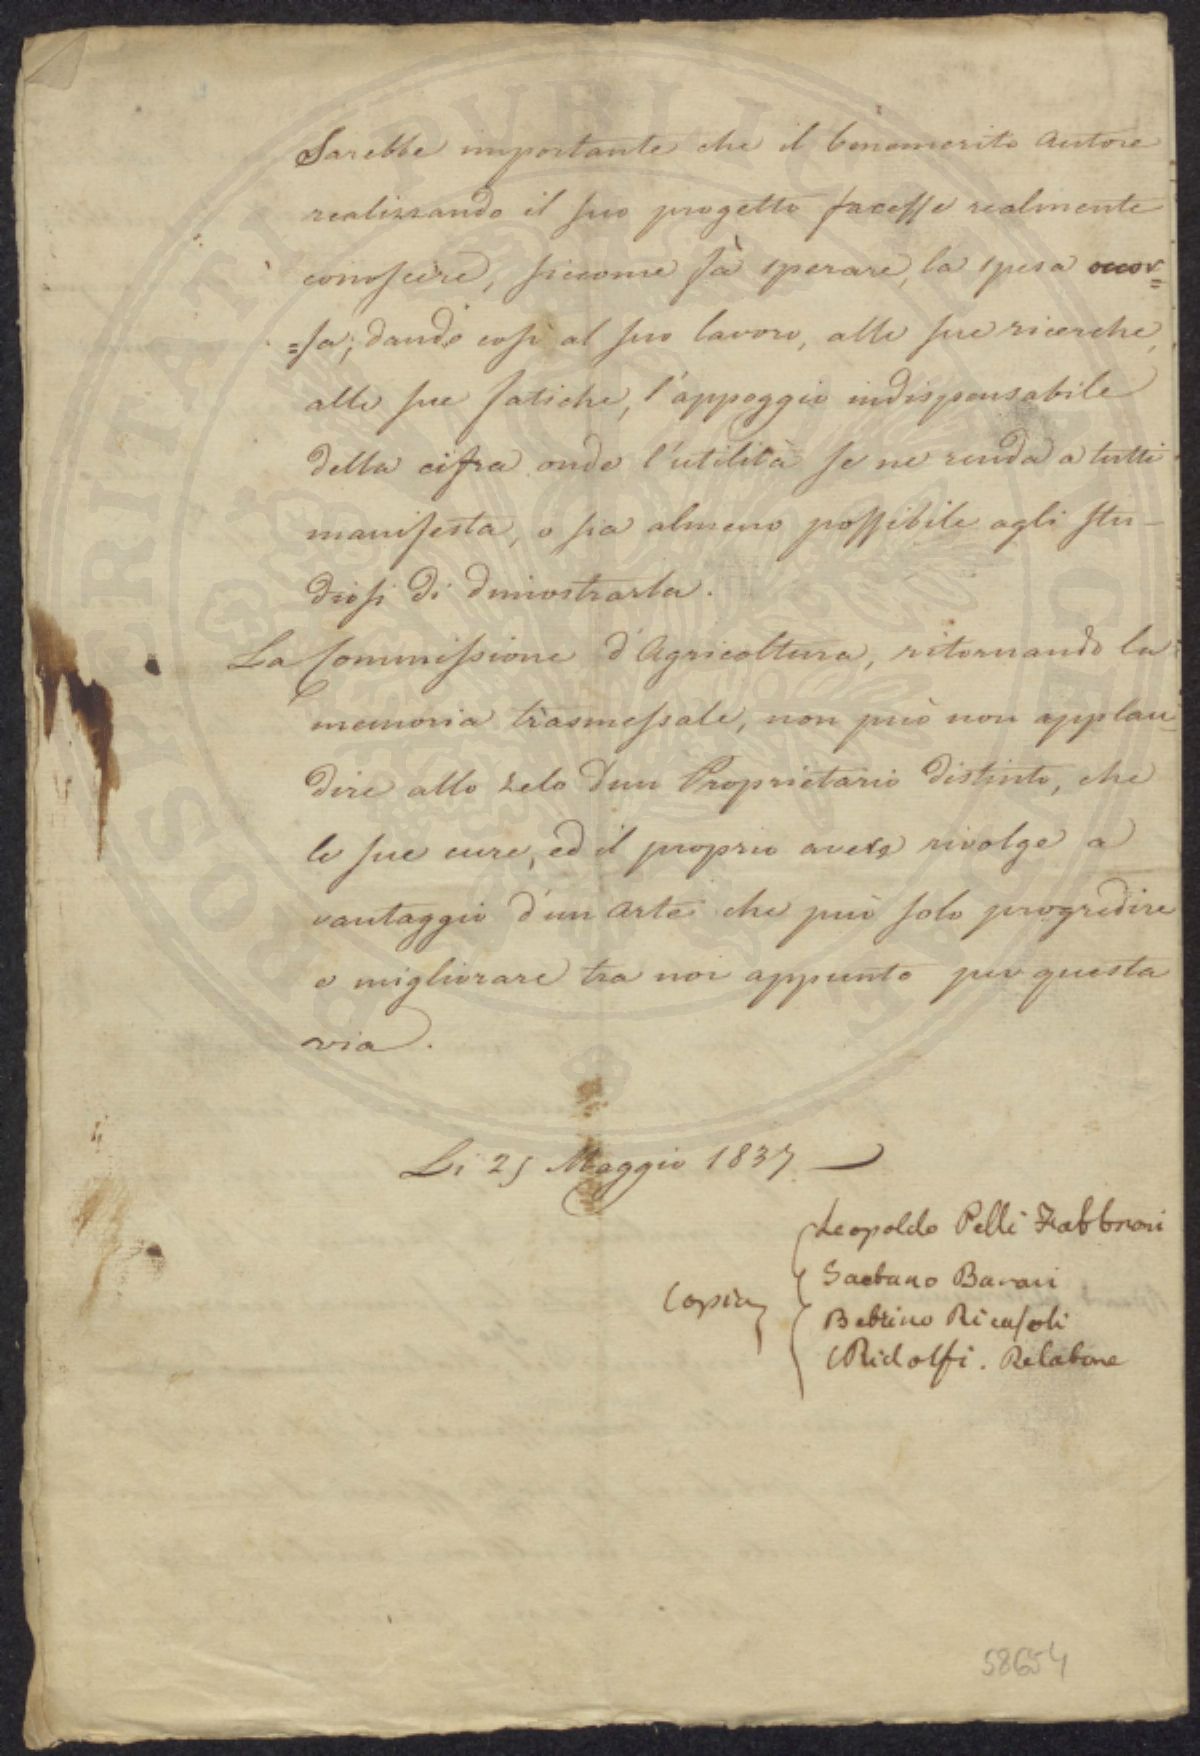 Sarebbe importante che il benemerito autore
realizzando il suo progetto facesse realmente
conoscere, siccome fà sperare, la spesa occor=
=sa, dando così al suo lavoro, alle sue ricerche,
alle sue fatiche, l'appoggio indispensabile
della cifra onde l'utilità se ne renda a tutti
manifesta, o sia almeno possibile agli stu-
diosi di dimostrarla.
La Commissione d'Agricoltura, ritornando la
memoria trasmessale, non può non applau=
dire allo zelo d'un Proprietario distinto, che
le sue cure, ed il proprio avere rivolge a
vantaggio d'un arte che può solo progredire
e migliorare tra noi appunto per questa
via.
Li 25 Maggio 1837
Leopoldo Pelli Fabbroni
Gaetano Baroni
Copia
Bettino Ricasoli
C Ridolfi. Relatore
58654
PROSPERITATI PVBLICAE AVGENDAE